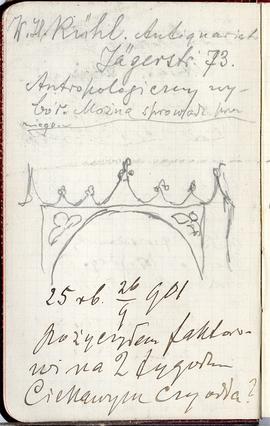 W. H. Kröhl. Antiquariat
Jägerstr. 73.
Antropologiczny wy-
bór. Można sprowadz. przez
niego
25 rb. 26/9 901
Pożyczyłem fakto-
wi na 2 tygodn
Ciekawym czy odda?